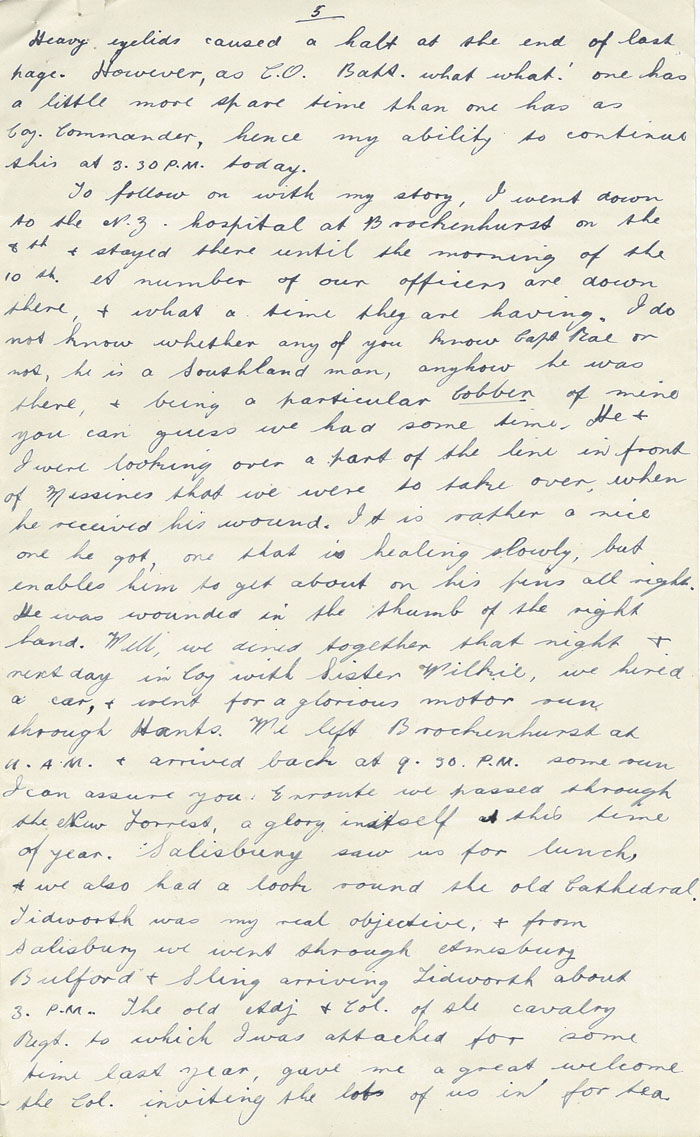 5
Heavy eyelids caused a halt at the end of last
page. However, as C.O. Batt. what what! one has
a little more spare time than one has as
Coy. Commander, hence my ability to continue
this at 3.30 P.M. today.
To follow on with my story, I went down
to the N.Z. hospital at Brockenhurst on the
8th + stayed there until the morning of the
10th. A number of our officers are down
there, + what a time they are having. I do
not know whether any of you know Capt Rae or
not, he is a Southland man, anyhow he was
there, + being a particular Cobber of mine
you can guess we had some time. He +
I were looking over a part of the line in front
of Messines that we were to take over, when
he received his wound. It is rather a nice
one he got, one that is healing slowly, but
enables him to get about on his pins all right.
He was wounded in the thumb of the right
hand. Well, we dined together that night +
next day in Coy with Sister Wilkie, we hired
a car, + went for a glorious motor run
through Hants. We left Brockenhurst at
11. A.M. + arrived back at 9.30. P.M. some run
I can assure you. Enroute we passed through
the New Forrest, a glory in itself at this time
of year. Salisbury saw us for lunch,
+ we also had a look round the old Cathedral.
Tidworth was my real objective, + from
Salisbury we went through Amesbury
Bulford + Sling arriving Tidworth about
3. P.M. The old Adj + Col. of the cavalry
Regt. to which I was attached for some
time last year, gave me a great welcome
the Col. inviting the lot of us in for tea